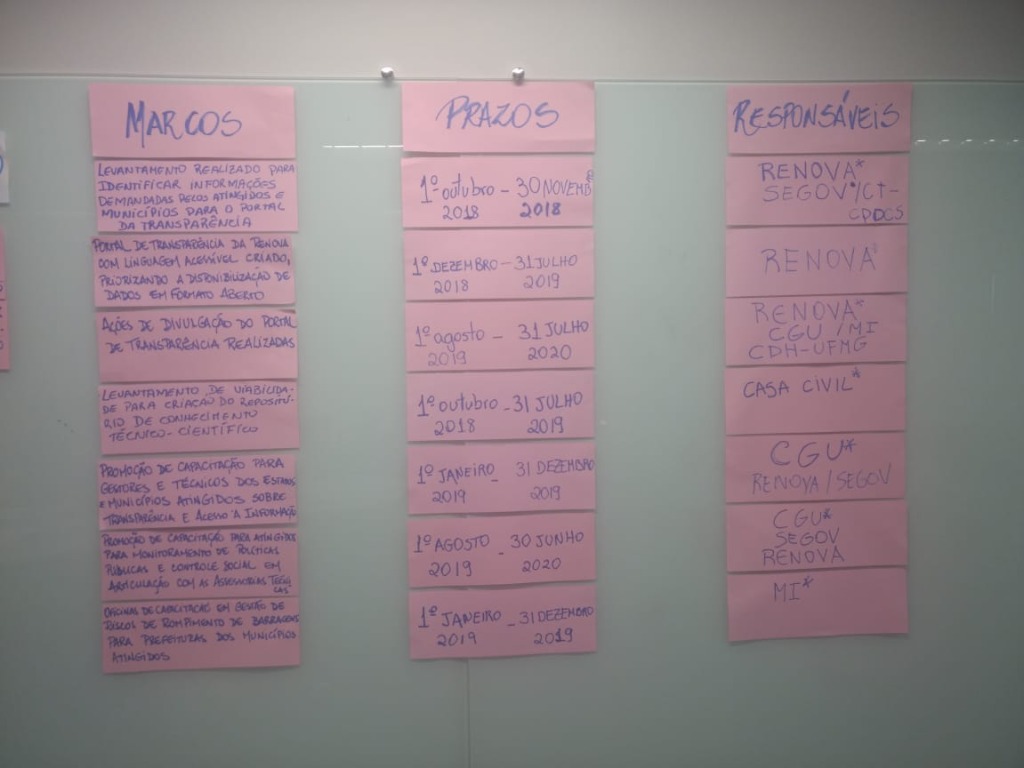 MARCOS
LEVANTAMENTO REALIZADO PARA
IDENTIFICAR INFORMAÇÕES
DEMANDADAS PELOS ATINGIDOS E
MUNICÍPIOS PARA O PORTAL
DA TRANSPARÊNCIA
PORTAL DE TRANSPARÊNCIA DA RENOVA
COM LINGUAGEM ACESSÍVEL CRIADO,
PRIORIZANDO A DISPONIBILIZAÇÃO DE
DADOS EM FORMATO ABERTO
AÇÕES DE DIVULGAÇÃO DO PORTAL
DE TRANSPARÊNCIA REALIZADAS
LEVANTAMENTO DE VIABILIDA-
DE PARA CRIAÇÃO DO REPOSITÓ-
RIO DE CONHECIMENTO
TÉCNICO-CIENTÍFICO
PROMOÇÃO DE CAPACITAÇÃO PARA
GESTORES E TÉCNICOS DOS ESTADOS
E MUNICÍPIOS ATINGIDOS SOBRE
TRANSPARÊNCIA E ACESSO À INFORMAÇÃO
PROMOÇÃO DE CAPACITAÇÃO PARA ATINGIDOS
PARA MONITORAMENTO DE POLÍTICAS
PÚBLICAS E CONTROLE SOCIAL EM
ARTICULAÇÃO COM AS ASSESSORIAS TÉCNI
CAS
OFICINAS DE CAPACITAÇÃO EM GESTÃO DE
RISCOS DE ROMPIMENTO DE BARRAGENS
PARA PREFEITURAS DOS MUNICÍPIOS
ATINGIDOS
PRAZOS
1º outubro - 30 NOVEMB
2018 2018
1º DEZEMBRO - 31 JULHO
2018 2019
1º agosto - 31 JULHO
2019 2020
1º outubro - 31 JULHO
2018 2019
1º JANEIRO - 31 DEZEMBRO
2019 2019
1º AGOSTO - 30 JUNHO
2019 2020
1º JANEIRO - 31 DEZEMBRO
2019 2019
RESPONSÁVEIS
RENOVA*
SEGOV*/CT-
CPDCS
RENOVA*
RENOVA*
CGU/MI
CDH-UFMG
CASA CIVIL*
CGU*
RENOVA/SEGOV
CGU*
SEGOV
RENOVA
MI*